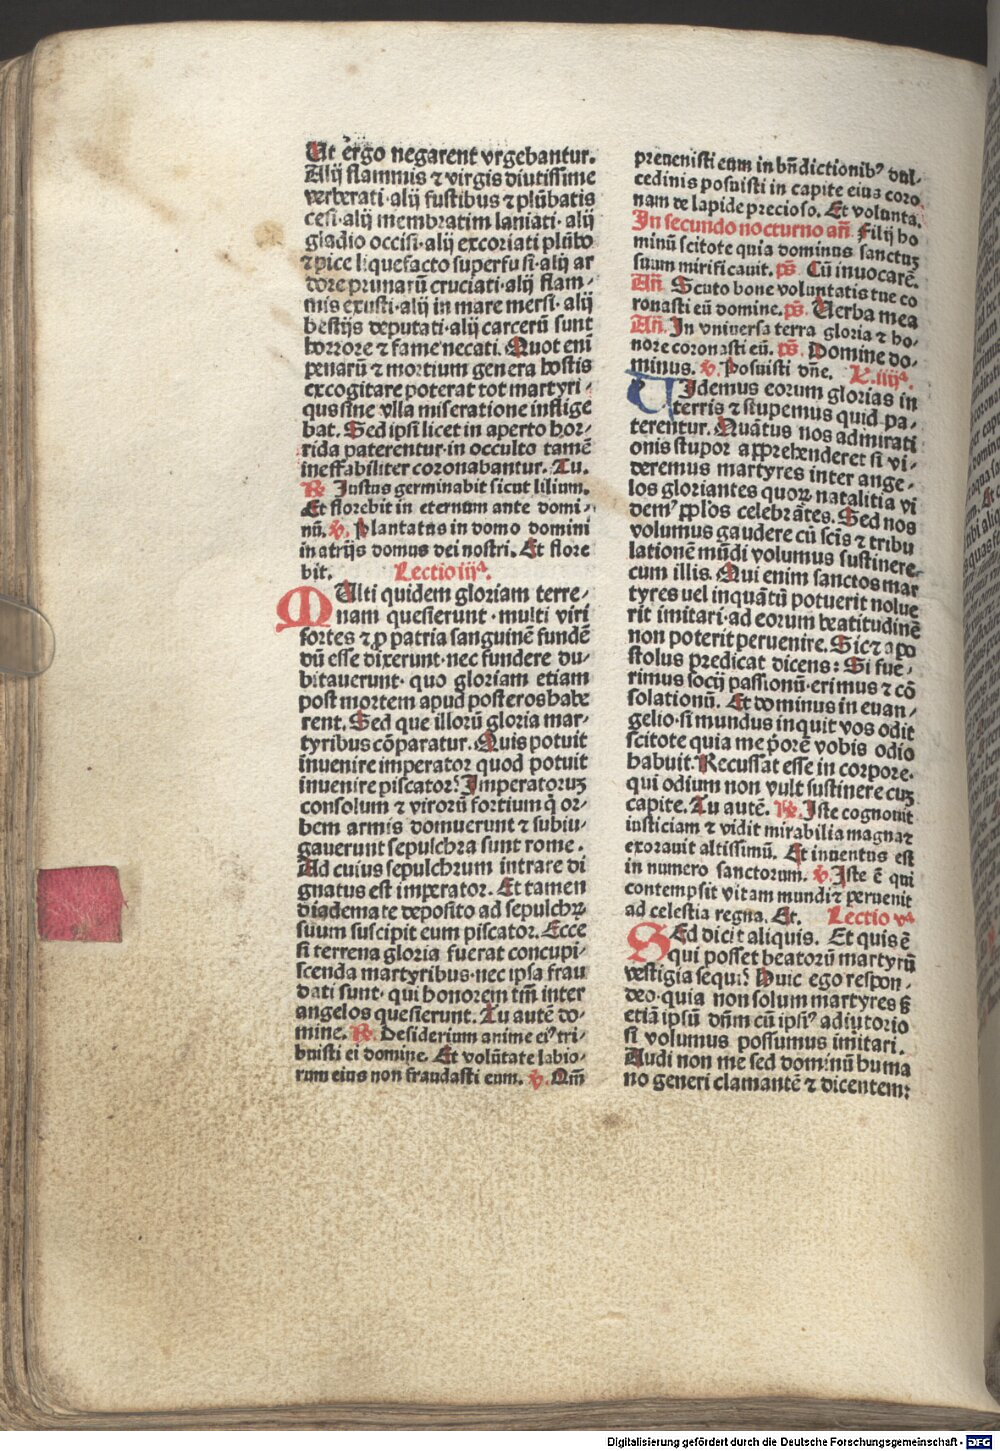 Ut ergo negarent vrgebantur.
Alij flammis ⁊ virgis diutissime
verberati·alij fustibus ⁊ plūbatis
cesi·alij membratim laniati·alij
gladio occisi·alij excoriati plūbo
⁊ pice liquefacto superfusi·alij ar
dore prunarū cruciati·alij flam-
mis exusti·alij in mare mersi·alij
bestijs deputati·alij carcerū sunt
horrore ⁊ fame necati. Quot eni
penarū ⁊ mortium genera hostis
excogitare poterat tot martyri-
qus sine vlla miseratione inflige
bat. Sed ipsi licet in aperto hor-
rida paterentur·in occulto tamē
ineffabiliter coronabantur. Tu.
℟. Justus germinabit sicut lilium.
Et florebit in eternum ante domi-
nū. ℣. Plantatus in domo domini
in atrijs domus dei nostri. Et flore
bit. Lectio iijᵃ.
MUlti quidem gloriam terre-
nam quesierunt·multi viri
fortes ⁊ ꝓ patria sanguinē fundē
dū esse dixerunt·nec fundere du-
bitauerunt·quo gloriam etiam
post mortem apud posteros habe
rent. Sed que illorū gloria mar-
tyribus cōparatur. Quis potuit
inuenire imperator quod potuit
inuenire piscator? Imperatoruꝫ
consolum ⁊ virorū fortium q̄ or-
bem armis domuerunt ⁊ subiu-
gauerunt sepulchra sunt rome.
Ad cuius sepulchrum intrare di
gnatus est imperator. Et tamen
diademate deposito ad sepulchꝝ
suum suscipit eum piscator. Ecce
si terrena gloria fuerat concupi-
scenda martyribus·nec ipsa frau
dati sunt·qui honorem tm̄ inter
angelos quesierunt. Tu autē do-
mine. ℟. Desiderium anime eiꝰ tri-
buisti ei domine. Et volūtate labio-
rum eius non fraudasti eum. ℣. Qm̄
preuenisti eum in bn̄dictionibꝰ dul-
cedinis posuisti in capite eius coro
nam de lapide precioso. Et volunta.
In secundo nocturno an̄. Filij ho
minū scitote quia dominus sanctuꝫ
suum mirificauit. ps̄. Cū inuocarē.
An̄. Scuto bone voluntatis tue co
ronasti eū domine. ps̄. Uerba mea
An̄. In vniuersa terra gloria ⁊ ho-
nore coronasti eū. ps̄. Domine do-
minus. ℣. Posuisti dn̄e. L. iiijᵃ.
UIdemus eorum glorias in
terris ⁊ stupemus quid pa-
terentur. Quātus nos admirati
onis stupor apprehenderet si vi-
deremus martyres inter ange-
los gloriantes quoꝝ natalitia vi
demꝰ ppl'os celebrātes. Sed nos
volumus gaudere cū scīs ⁊ tribu
lationē mūdi volumus sustinere
cum illis. Qui enim sanctos mar
tyres uel inquātū potuerit nolue
rit imitari·ad eorum beatitudinē
non poterit peruenire. Sic ⁊ apo
stolus predicat dicens: Si fue-
rimus socij passionū·erimus ⁊ cō
solationū. Et dominus in euan-
gelio·si mundus inquit vos odit
scitote quia me p̄orē vobis odio
habuit. Recussat esse in corpore·
qui odium non vult sustinere cuꝫ
capite. Tu autē. ℟. Iste cognouit
iusticiam ⁊ vidit mirabilia magna⁊
exorauit altissimū. Et inuentus est
in numero sanctorum. ℣. Iste ē qui
contempsit vitam mundi⁊ peruenit
ad celestia regna. Et. Lectio vᵃ
SEd dicit aliquis. Et quis ē
qui posset beatorū martyrū
vestigia sequi? Huic ego respon-
deo·quia non solum martyres ꝫ
etiā ipsū dn̄m cū ipsiꝰ adiutorio
si volumus possumus imitari.
Audi non me sed dominū huma
no generi clamantē ⁊ dicentem:
Digitalisierung gefördert durch die Deutsche Forschungsgemeinschaft - DFG